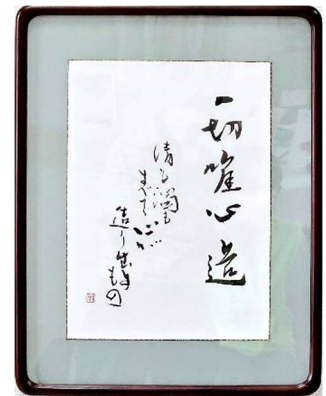 一切唯心造
清るも濁るも
すべて心が
造り出すもの